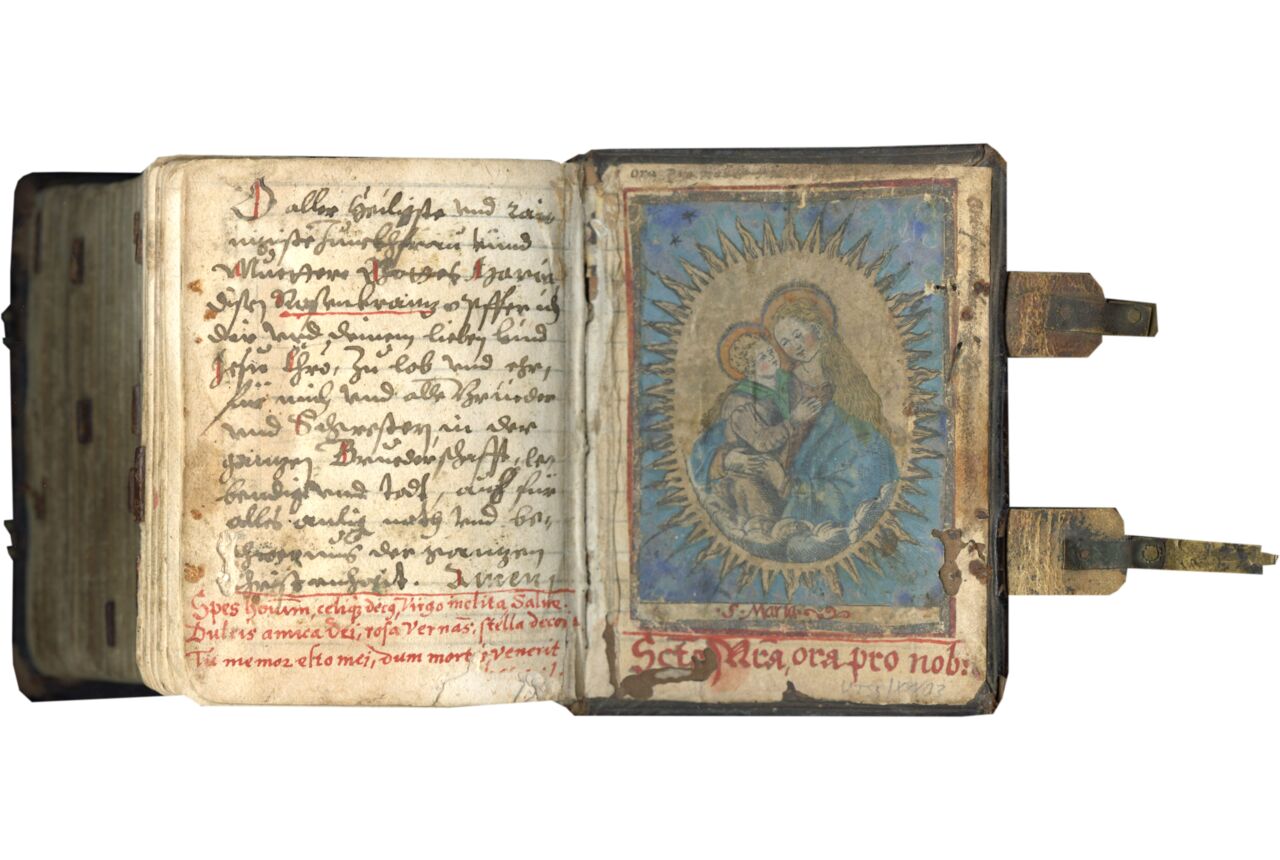 O aller Heiligste vnd rai-
nigste Junckhfraw vnnd
Muetter Gottes Maria
disen Rosenkrantz opffer ich
dir vnd deinem lieben kind
Jesu Chro, zu lob vnd ehr,
für mich vnd alle Brüeder
vnd Schwestern, in der
gantzen Bruederschafft, le-
bendig vnd todt, auch für
alles anlig noth vnd be-
schwernus der gantzen
Christenheit. Amen
Spes hominum, celiq; decq, Virgo inclita Salue.
Dulcis amica dei, rosa vernas, stella decora
Tu memor esto mei, dum mortis venerit
ora pro
S. Maria
Scta Mra, ora pro nob: